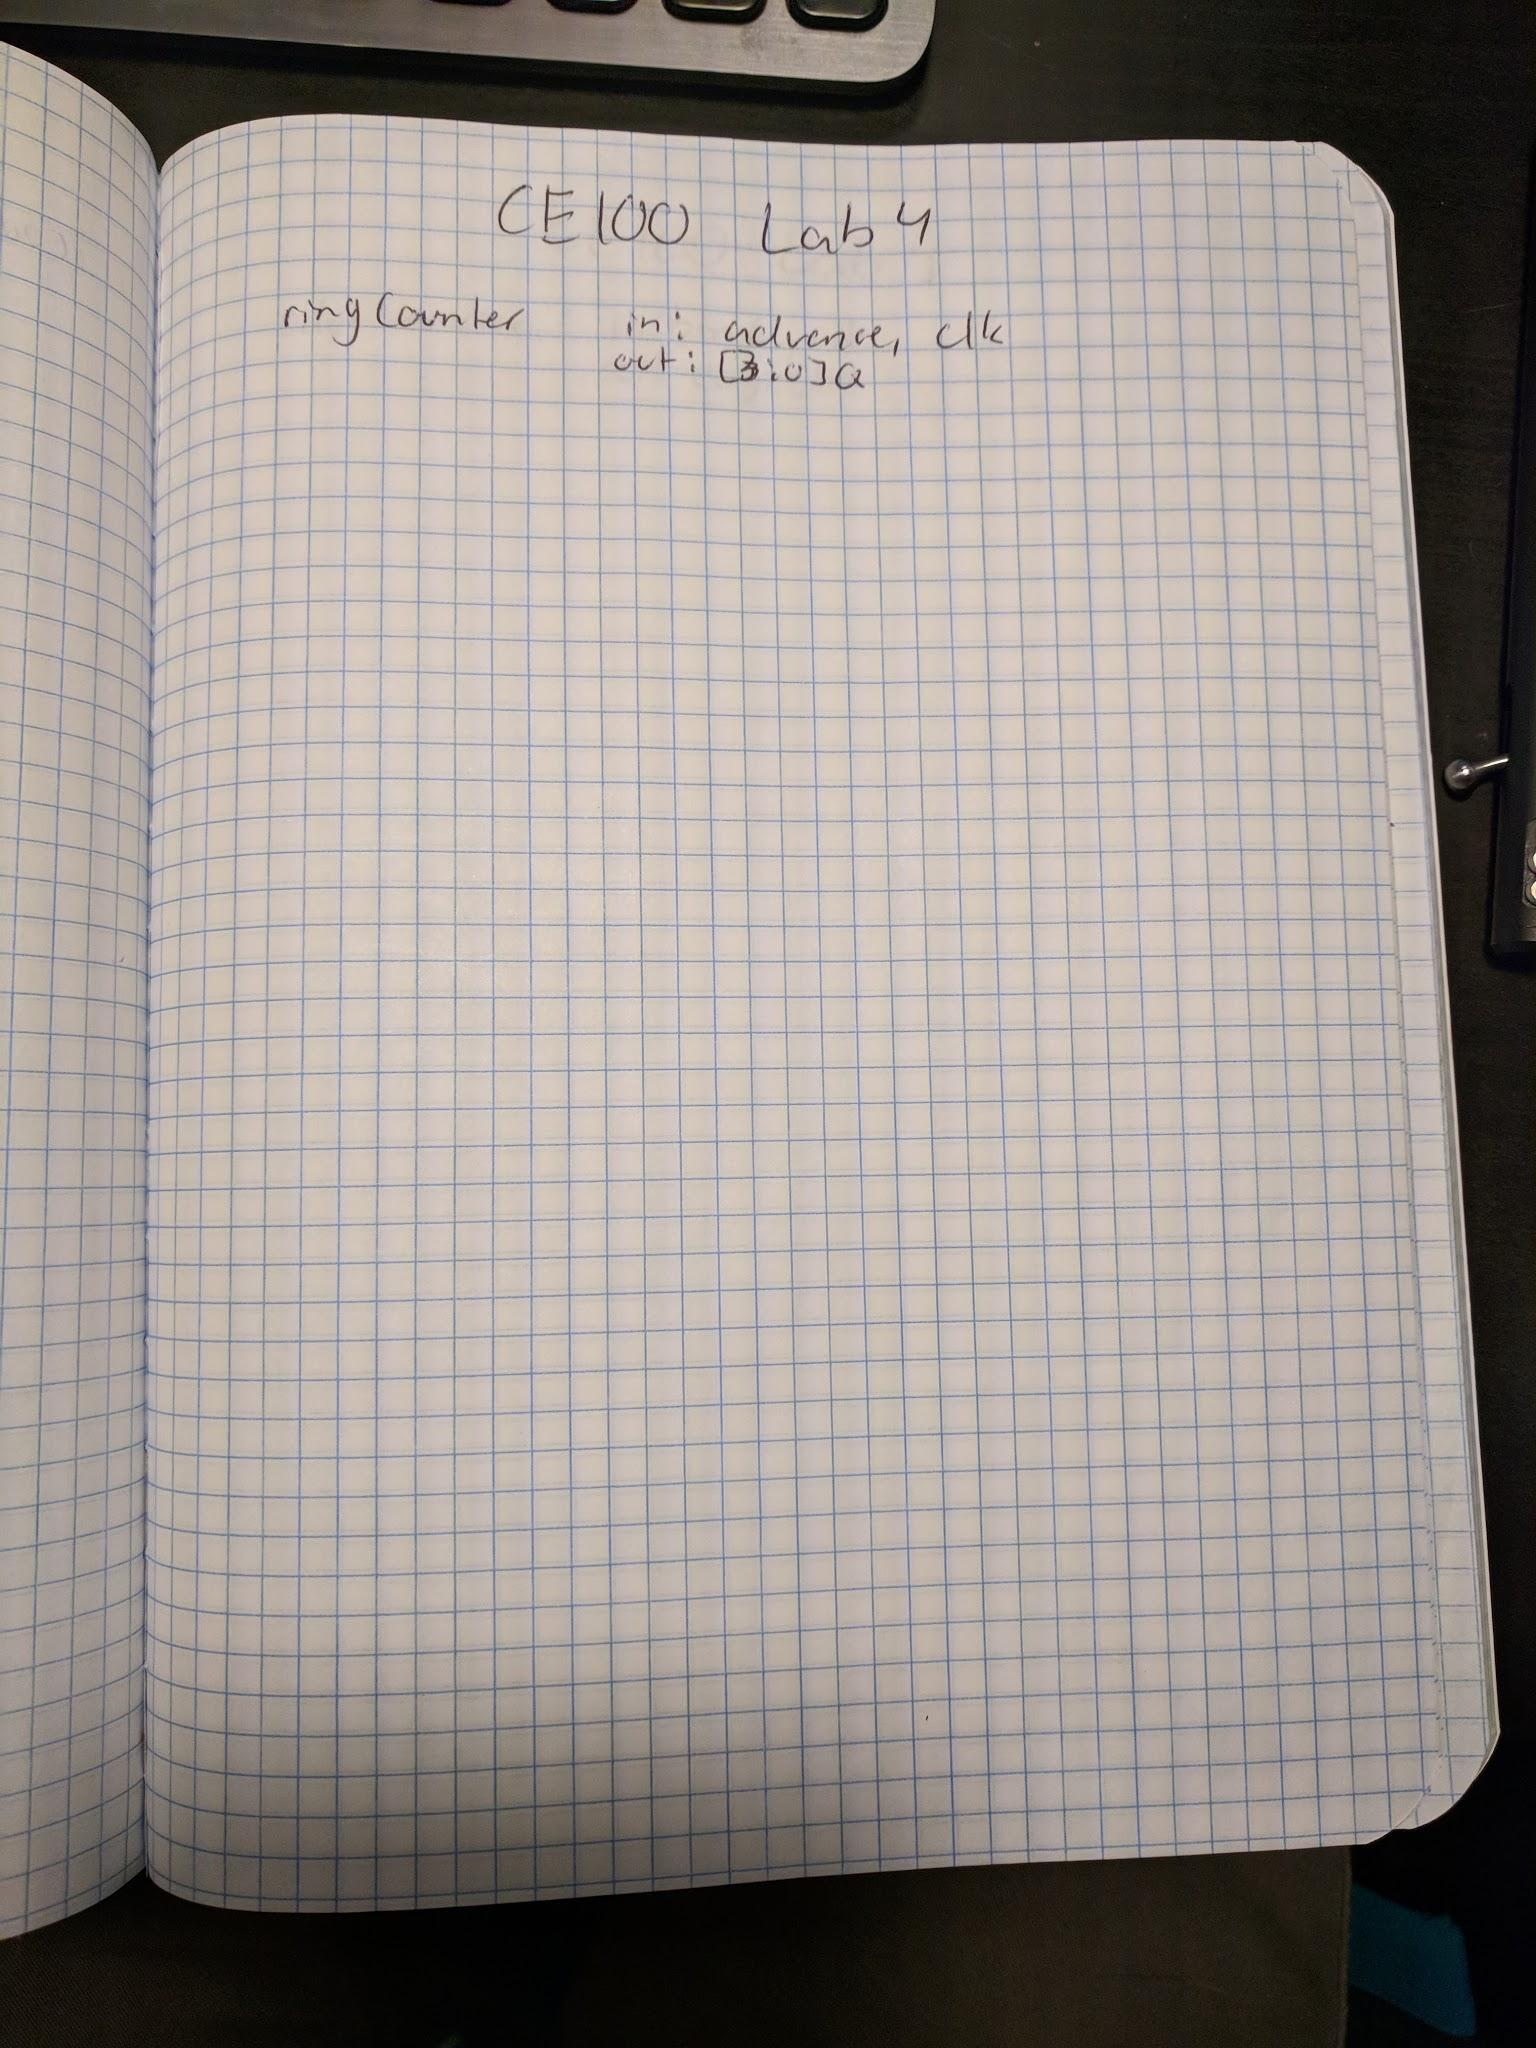 CE100 Lab 4
ringCounter in: advance, clk
out: [3:0]Q